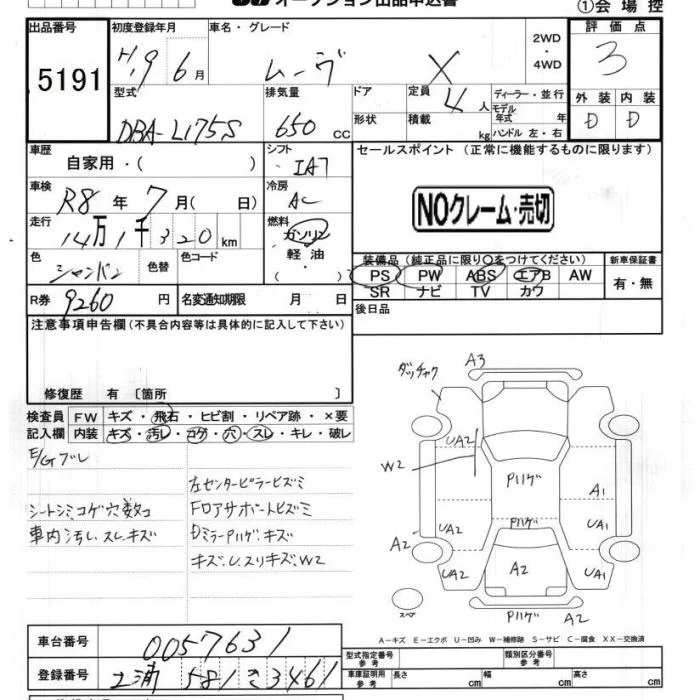 オークション出品申込書
①会場控
出品番号 5191
初度登録年月 H19年6月
車名・グレード ムーヴ X
2WD・4WD
評価点 3
型式 DBA-L175S
排気量 650 cc
ドア
形状
定員 4人
積載 kg
ディーラー・並行
モデル年式 年
ハンドル 左・右
外装 D 内装 D
車歴 自家用・( )
シフト IA7
セールスポイント (正常に機能するものに限ります)
車検 R8年7月( 日)
冷房 AC
NOクレーム・売切
走行 14万1千320km
燃料 ガソリン 軽油 ( )
色 シャンパン 色替 色コード
装備品 (純正品に限り○をつけてください) 新車保証書
PS PW ABS エアB AW 有・無
SR ナビ TV カワ
R券 9260円 名変通知期限 月 日
後日品
注意事項申告欄 (不具合内容等は具体的に記入して下さい)
修復歴 有 〔箇所 〕
検査員記入欄 FW キズ・飛石・ヒビ割・リペア跡・×要
内装 キズ・汚レ・コゲ・穴・スレ・キレ・破レ
E/Gブレ
左センターピラーヒズミ
シートシミコゲ穴数コ Fロアサポートヒズミ
車内汚レ.スレ.キズ DミラーPハゲ.キズ
キズ.U.スリキズ.W2
ダッチャク A3
UA2 W2 Pハゲ
A1
UA2 Pハゲ UA1
A2
UA2 A2 UA1
スペア Pハゲ A2
A-キズ E-エクボ U-凹み W-補修跡 S-サビ C-腐食 XX-交換済
車台番号 0057631
型式指定番号 参考 類別区分番号 参考
登録番号 土浦 581 き 3461
車庫証明用 参考 長さ cm 幅 cm 高さ cm